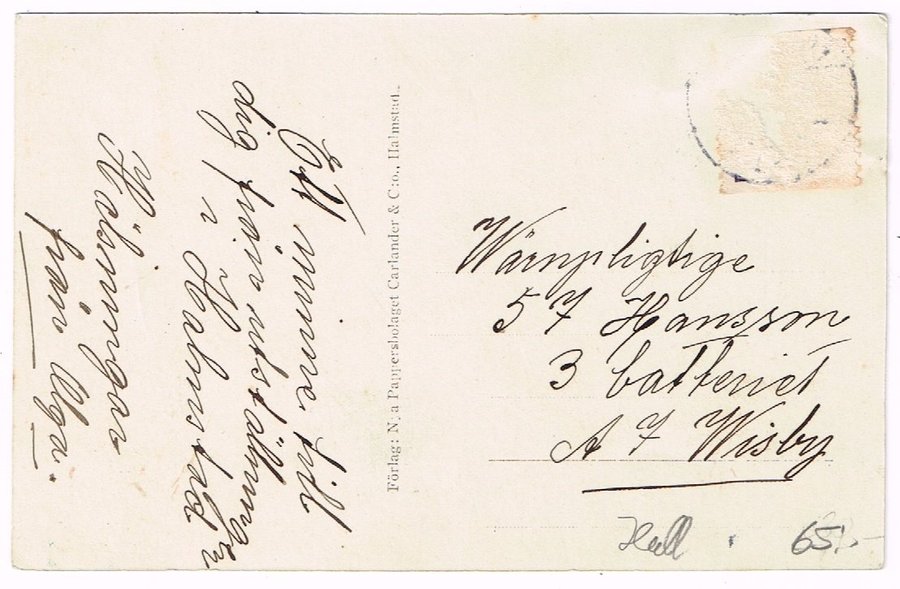 Ett minne till
dig från utställningen
i Halmstad
Hälsningar
från Olga.
Förlag: N:a Pappersbolaget Carlander & C:o., Halmstad.
Wärnpligtige
57 Hansson
3 batteriet
A 7 Wisby
Hall 65:-